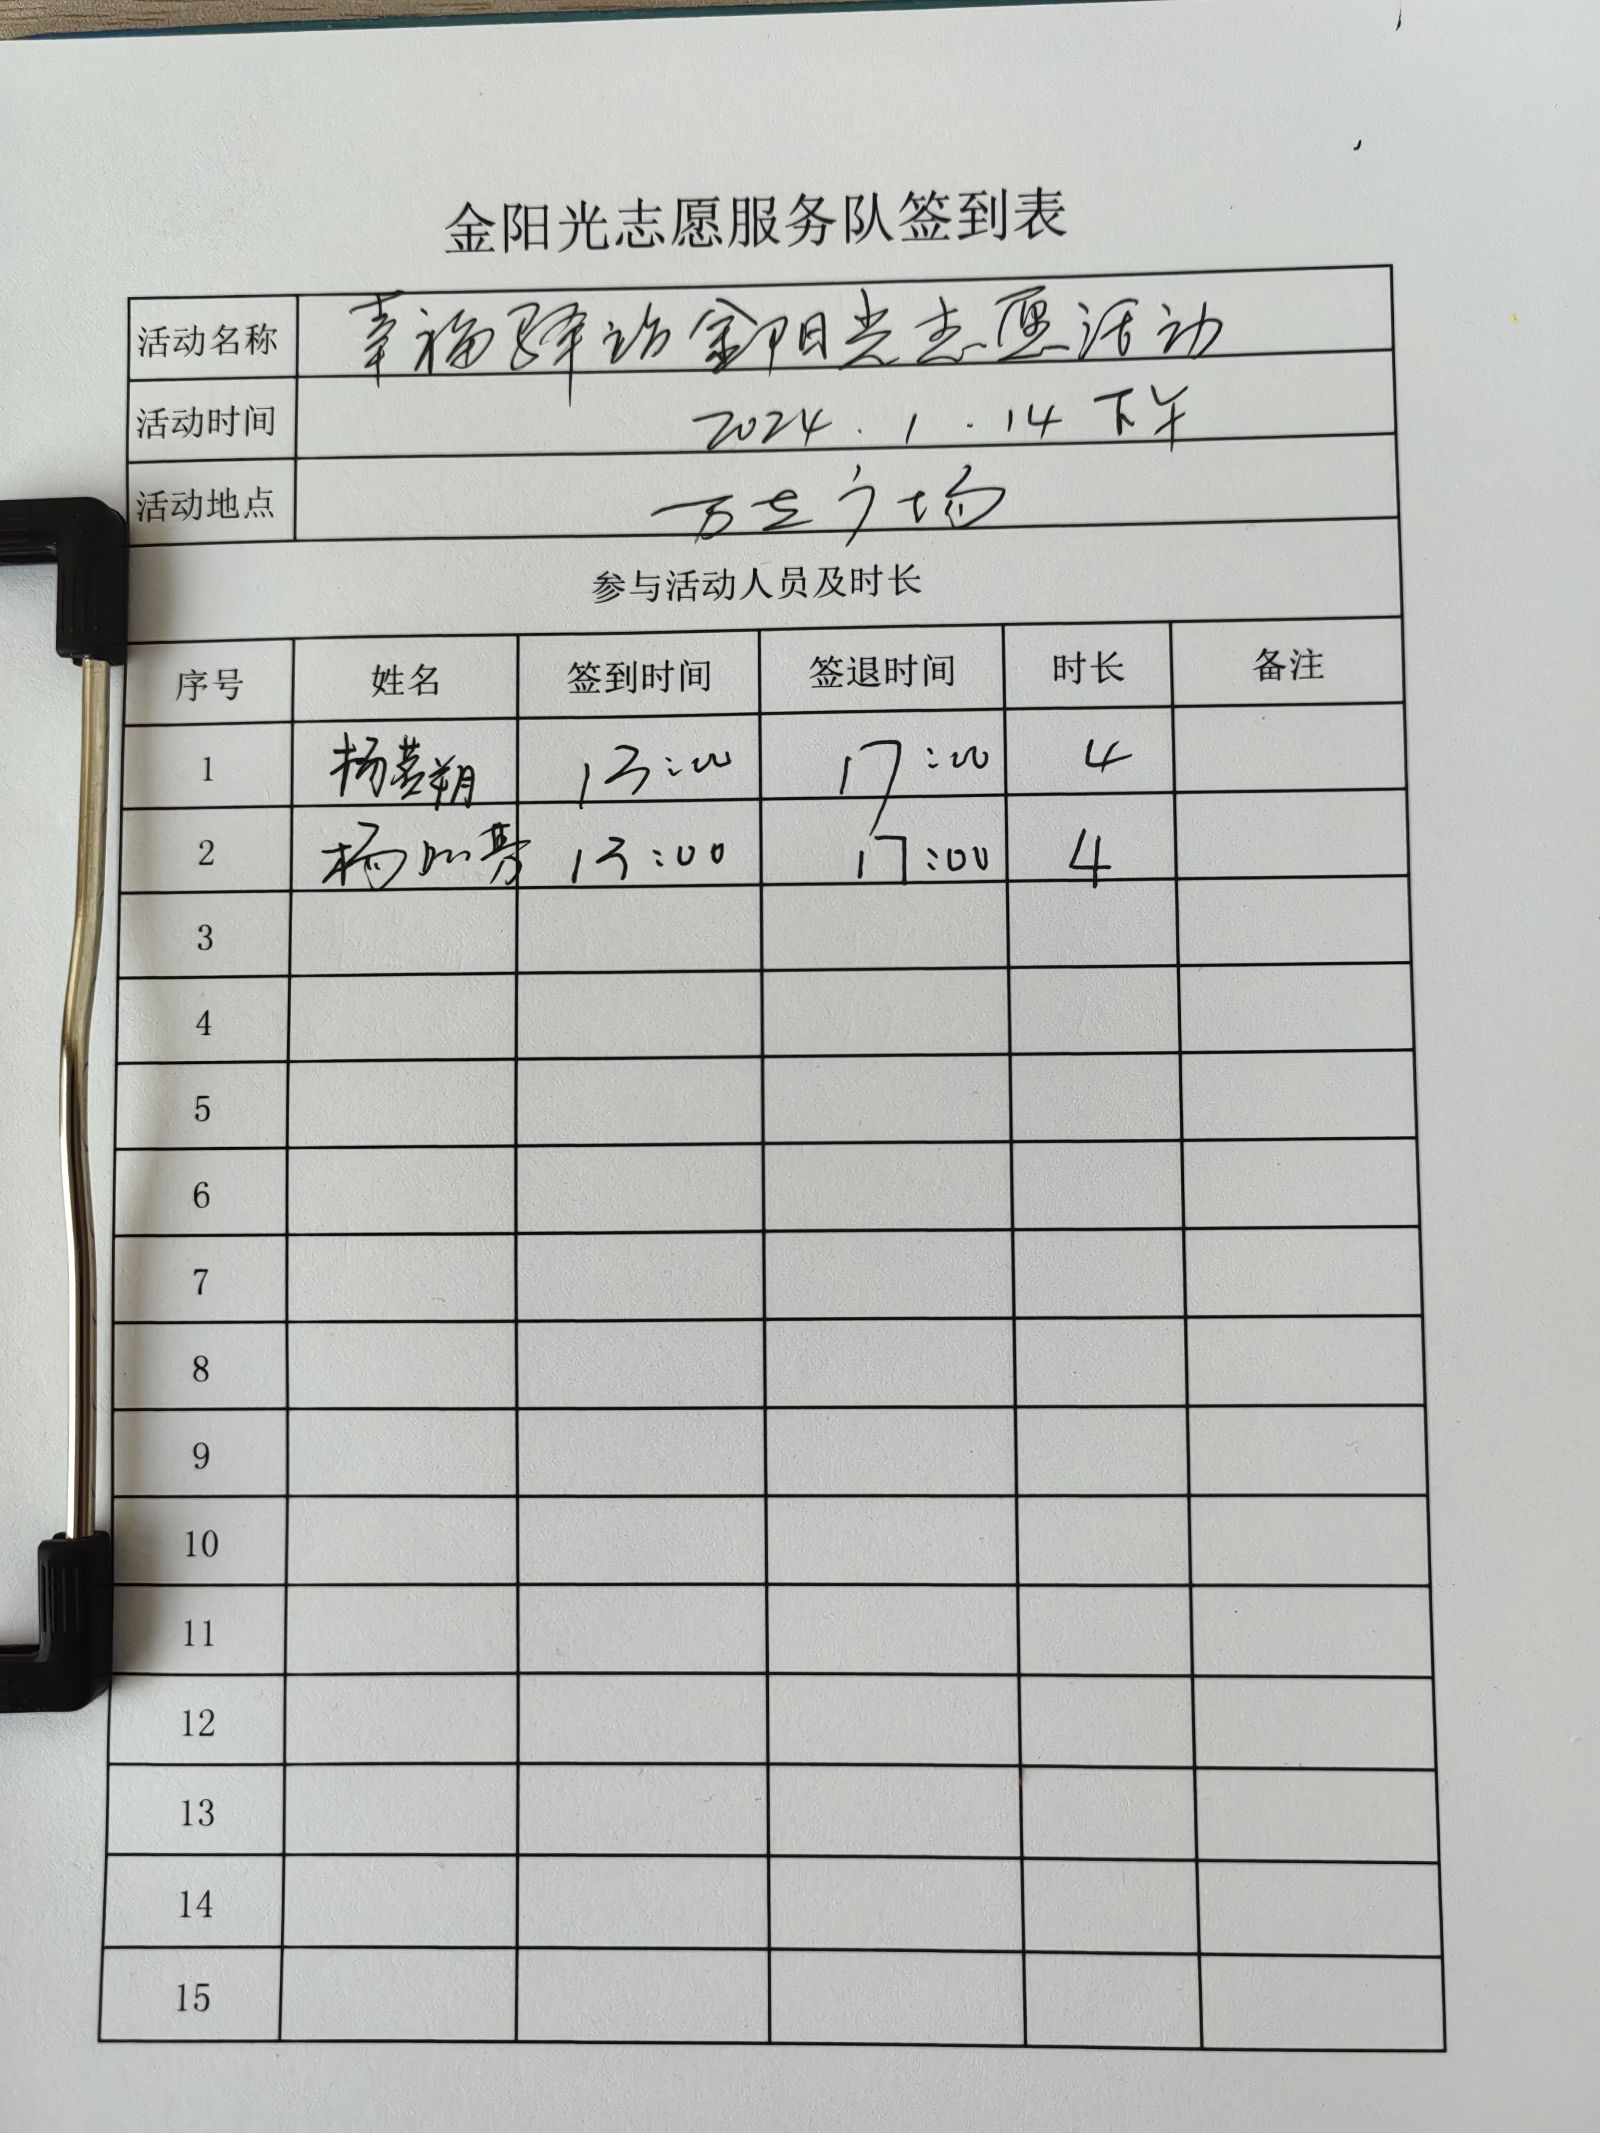 金阳光志愿服务队签到表
活动名称 幸福驿站金阳光志愿活动
活动时间 2024.1.14 下午
活动地点 万达广场
参与活动人员及时长
序号 姓名 签到时间 签退时间 时长 备注
1 杨 13:00 17:00 4
2 杨 13:00 17:00 4
3
4
5
6
7
8
9
10
11
12
13
14
15